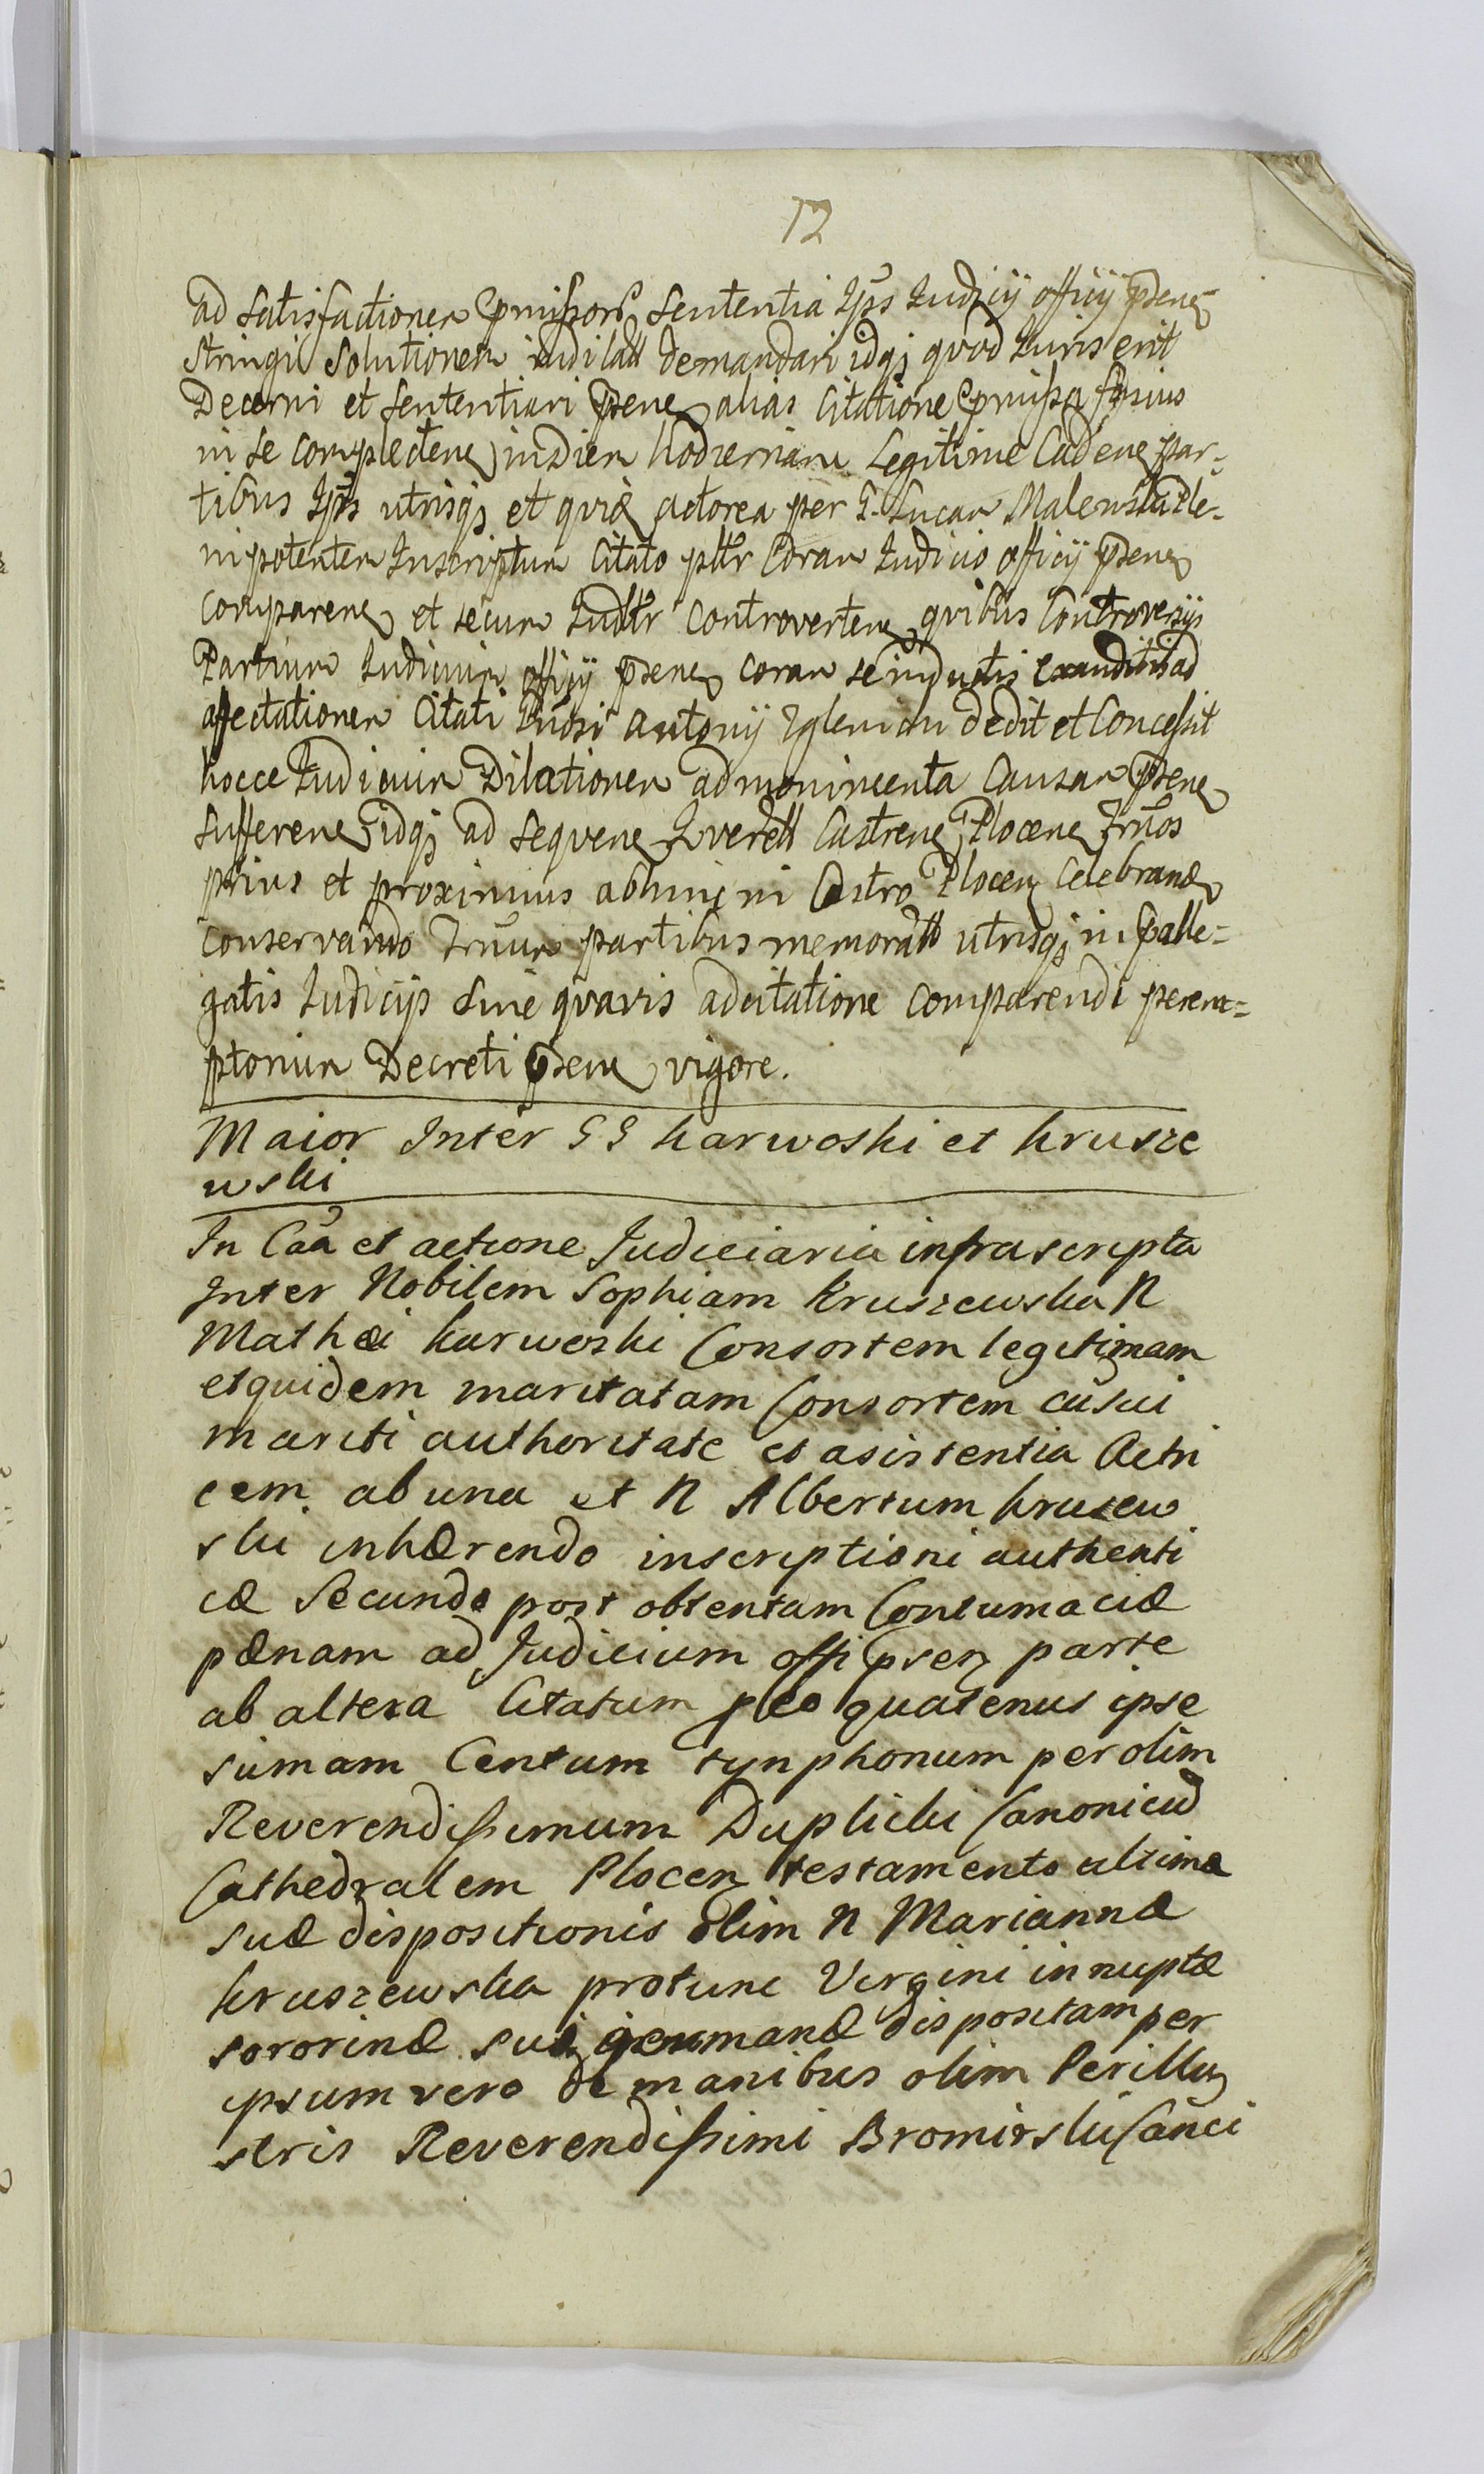 12
ad satisfactionem pmissor sententia Ips Iudicij officij psene
stringi solutionem iudilatt demandari idq quod Iuris erit
Decerni et sententiari psene alias Citatione pmissa fusius
in se complectene in diem hodiernam Legitime Cadene par=
tibus Ips utrisq et quia actorea per G. Lucam Malewski Ple=
nipotentem Inscriptum Citato pltr Coram Iudicio officij psene
comparene et secum Iudltr Controvertene quibus Controversijs
Partium Iudicium officij psene coram se inductis exauditis ad
affectationem Citati Antonij dedit et Concessit
hocce Iudicium Dilationem ad monimenta Causam psene
sufferene idq ad sequene Qverell Castrene Plocene Trnos
prius et proximius abhinc in Castro Plocen Celebrane
conservando Trnum partibus memoratt utrisq in palle=
gatis Iudicijs sine quavis adcitatione comparendi perem=
ptorium Decreti psene vigore.
Maior Inter GG karwoski et krusze
wski
In Caa et actione Judiciaria infrascripta
Inter Nobilem Sophiam Kruszewska N
Mathæi karwoski Consortem legitimam
et quidem maritatam Consortem cu sui
mariti authoritate et asistentia Actri
cem ab una et N Albertum kruszew
ski inhærendo inscriptioni authenti
cæ Secundo post obtentam Contumaciæ
pænam ad Judicium offi psen parte
ab altera Citatum p eo quatenus ipse
sumam Centum tynphonum per olim
Reverendissimum Duplicki Canonicu
Cathedralem Plocen testamento ultimæ
suæ dispositionis olim N Mariannæ
kruszewska protunc Virgini innuptæ
sororinæ suæ germanæ dispositam per
ipsum vero de manibus olim Perillu
stris Reverendissimi Bromirski Canci